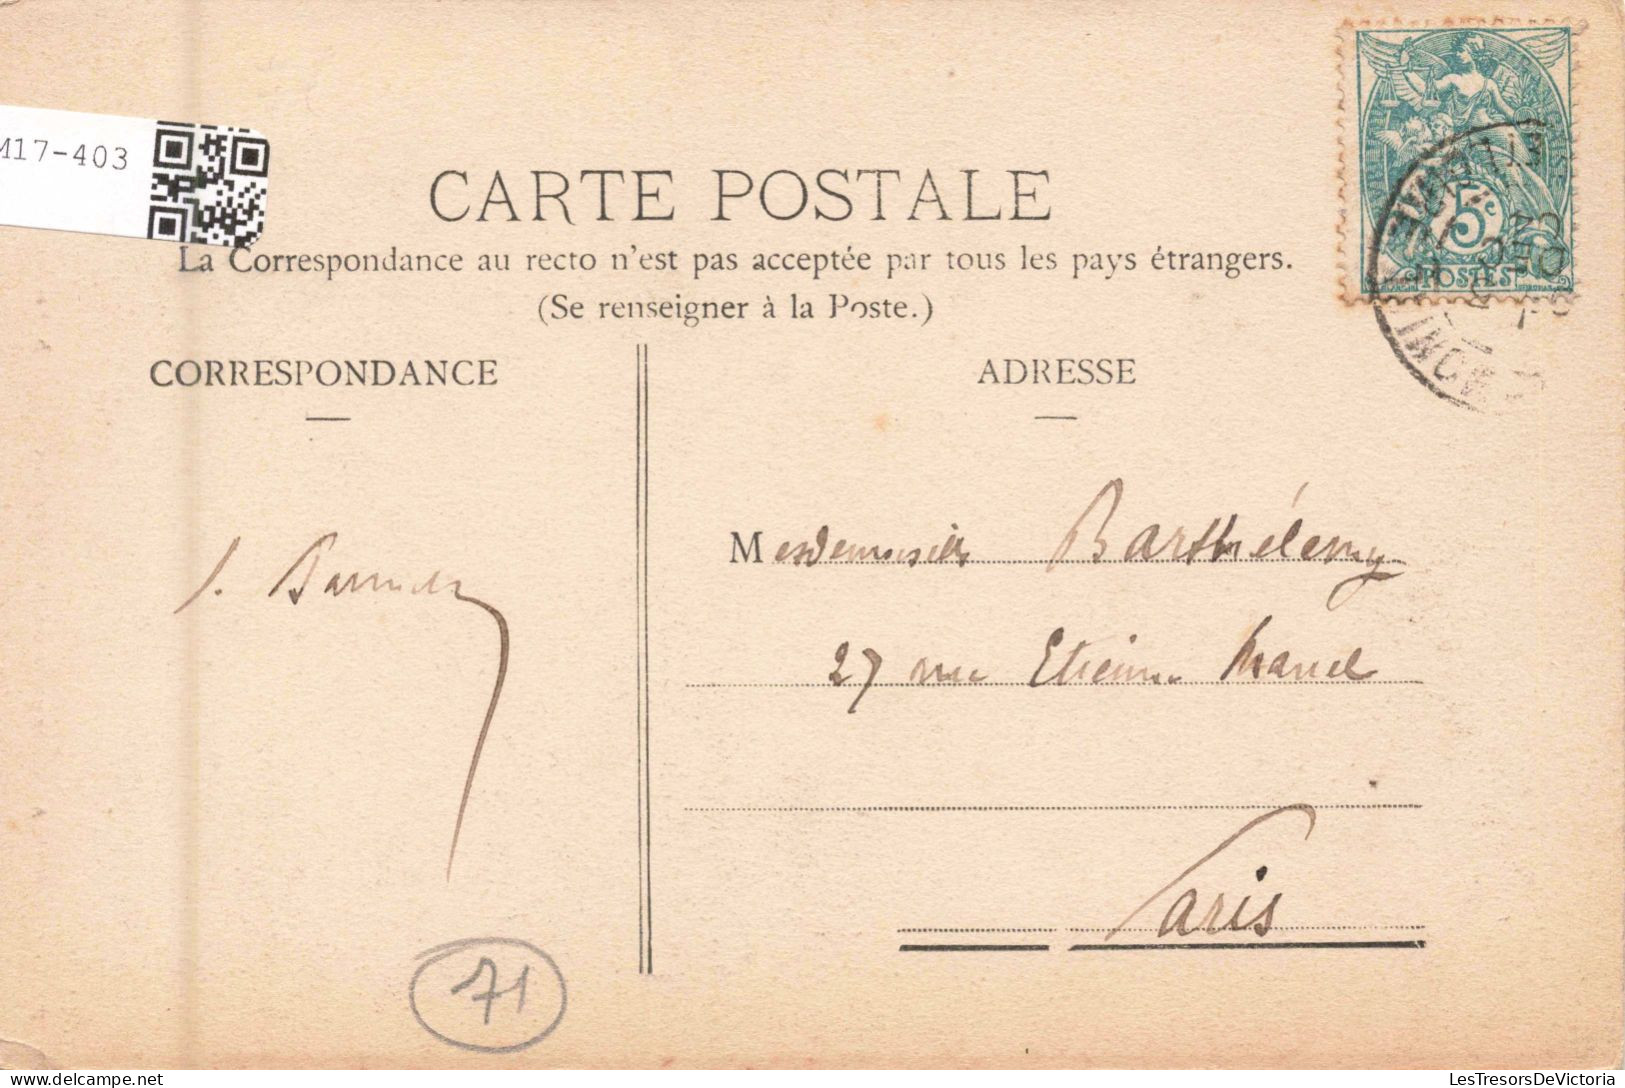 M17-403
5c
POSTES
CARTE POSTALE
La Correspondance au recto n'est pas acceptée par tous les pays étrangers.
(Se renseigner à la Poste.)
CORRESPONDANCE
ADRESSE
Mesdemoiselles Barthélemy
27 rue Etienne Marcel
Paris
71
LesTresorsDeVictoria